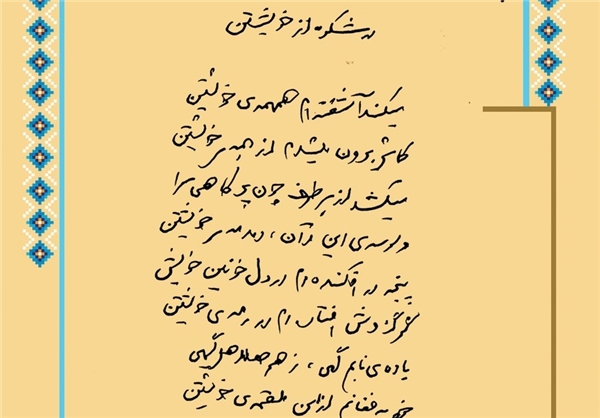 در شکوه از خویشتن
میکند آشفته‌ام همهمه‌ی خویشتن
کاش برون میشدم از همه‌ی خویشتن
میکشد از هر طرف چون پر کاهی مرا
وسوسه‌ی این و آن، دمدمه‌ی خویشتن
پنجه در افکنده‌ام در دل خونین خویش
گرگ وش افتاده‌ام در رمه‌ی خویشتن
باده‌ی نابم گهی، زهر هلاهل گهی
خود به فغانم ازین ملقمه‌ی خویشتن